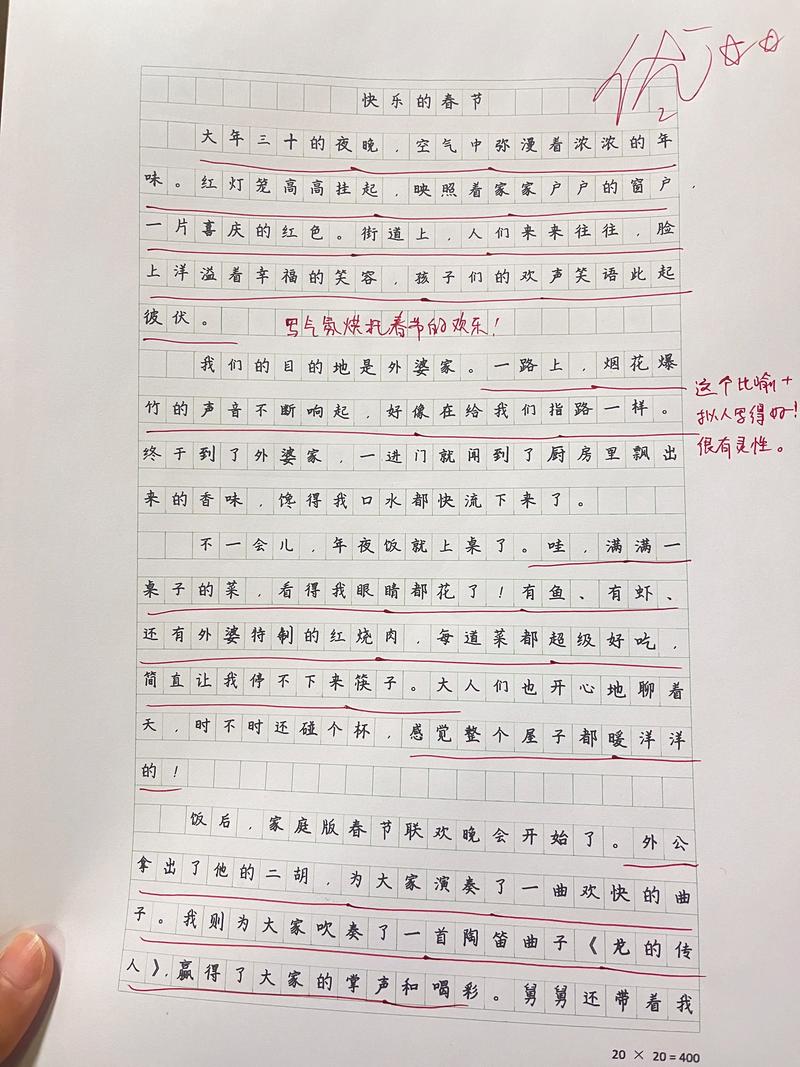 优
2
快乐的春节
大年三十的夜晚，空气中弥漫着浓浓的年
味。红灯笼高高挂起，映照着家家户户的窗户，
一片喜庆的红色。街道上，人们来来往往，脸
上洋溢着幸福的笑容，孩子们的欢声笑语此起
彼伏。
写气氛烘托春节的欢乐！
我们的目的地是外婆家。一路上，烟花爆
竹的声音不断响起，好像在给我们指路一样。
这个比喻+
拟人写得好！
很有灵性。
终于到了外婆家，一进门就闻到了厨房里飘出
来的香味，馋得我口水都快流下来了。
不一会儿，年夜饭就上桌了。哇，满满一
桌子的菜，看得我眼睛都花了！有鱼、有虾、
还有外婆特制的红烧肉，每道菜都超级好吃，
简直让我停不下来筷子。大人们也开心地聊着
天，时不时还碰个杯，感觉整个屋子都暖洋洋
的！
饭后，家庭版春节联欢晚会开始了。外公
拿出了他的二胡，为大家演奏了一曲欢快的曲
子。我则为大家吹奏了一首陶笛曲子《龙的传
人》，赢得了大家的掌声和喝彩。舅舅还带着我
20 × 20=400